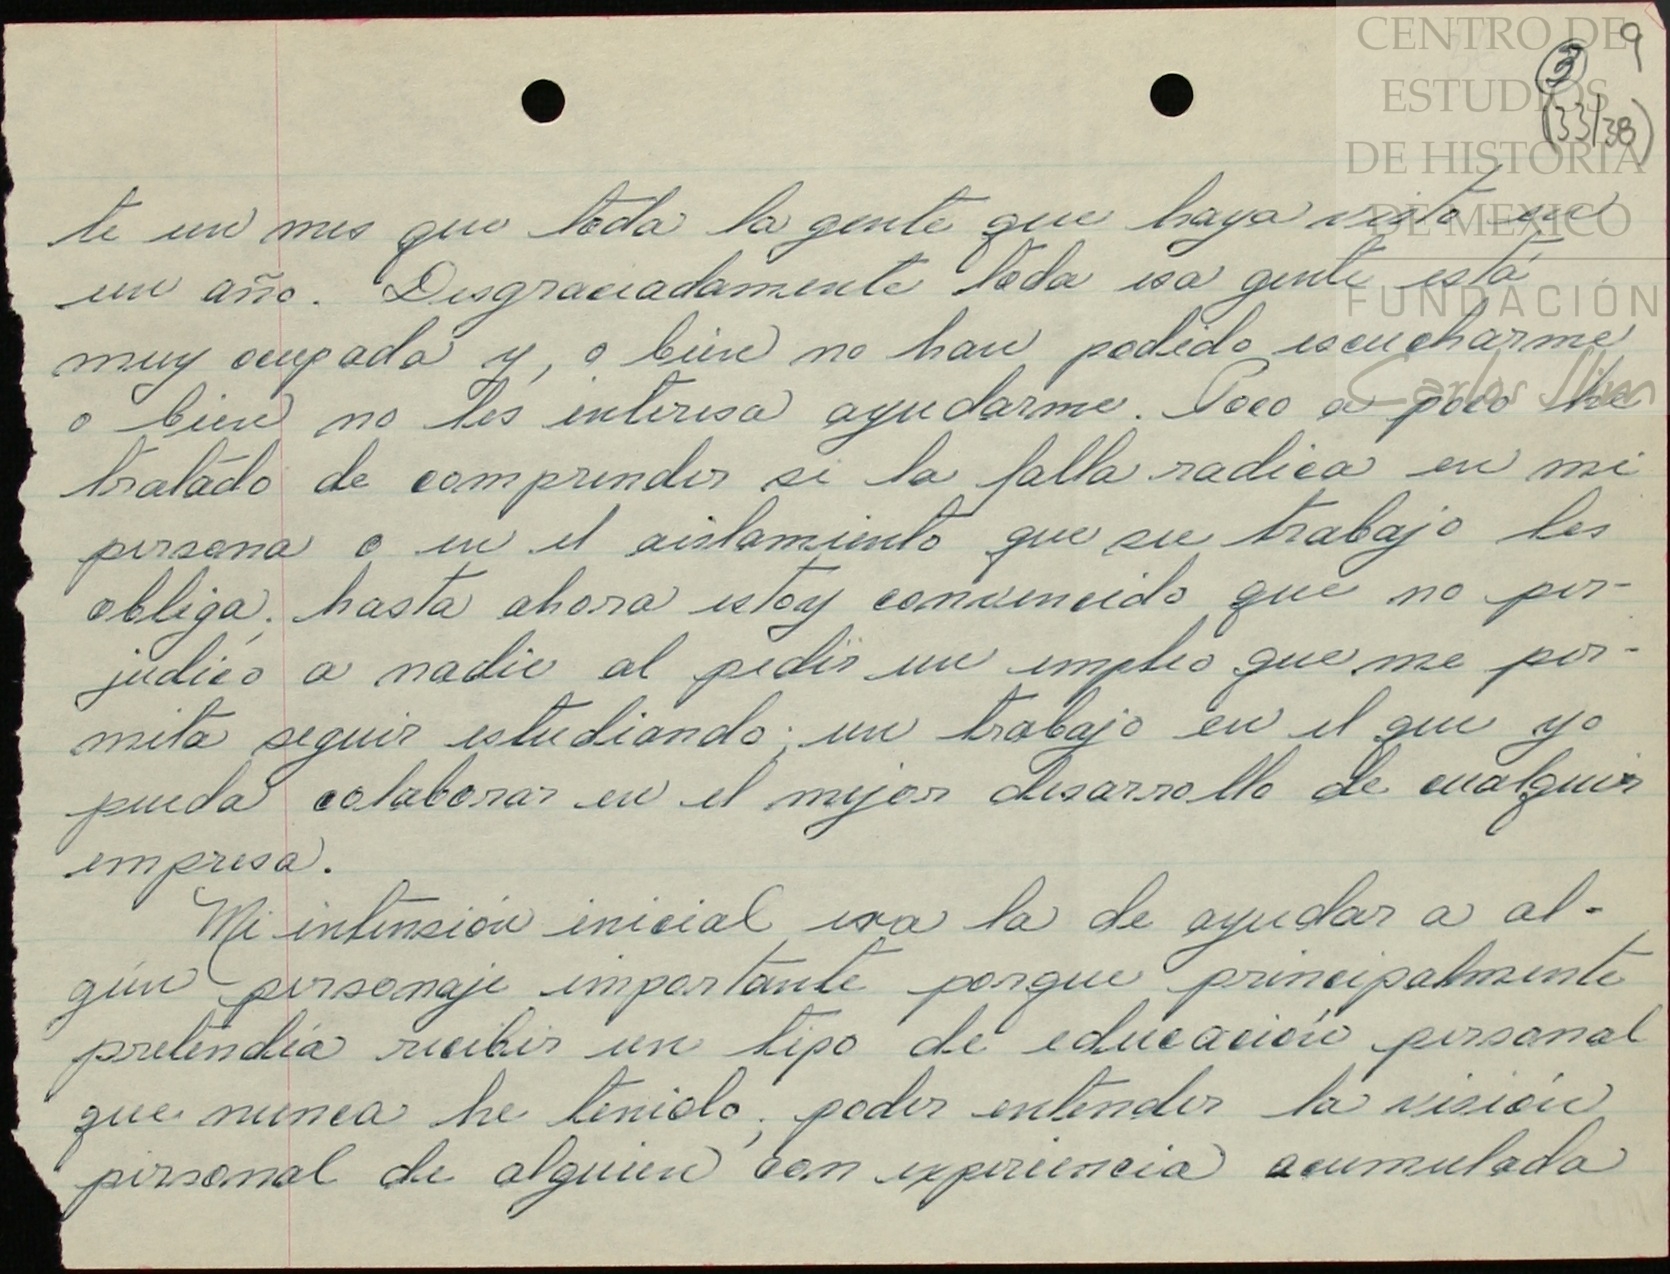 CENTRO DE
ESTUDIOS
DE HISTORIA
DE MEXICO
FUNDACIÓN
Carlos Slim
9
3
(33/38)
te un mes que toda la gente que haya visto en
un año. Desgraciadamente toda esa gente está
muy ocupada y, o bien no han podido escucharme
o bien no les interesa ayudarme. Poco a poco he
tratado de comprender si la falla radica en mi
persona o en el aislamiento que su trabajo les
obliga; hasta ahora estoy convencido que no per-
judico a nadie al pedir un empleo que me per-
mita seguir estudiando; un trabajo en el que yo
pueda colaborar en el mejor desarrollo de cualquier
empresa.
Mi intensión inicial era la de ayudar a al-
gún personaje importante porque principalmente
pretendía recibir un tipo de educación personal
que nunca he tenido; poder entender la visión
personal de alguien con experiencia acumulada